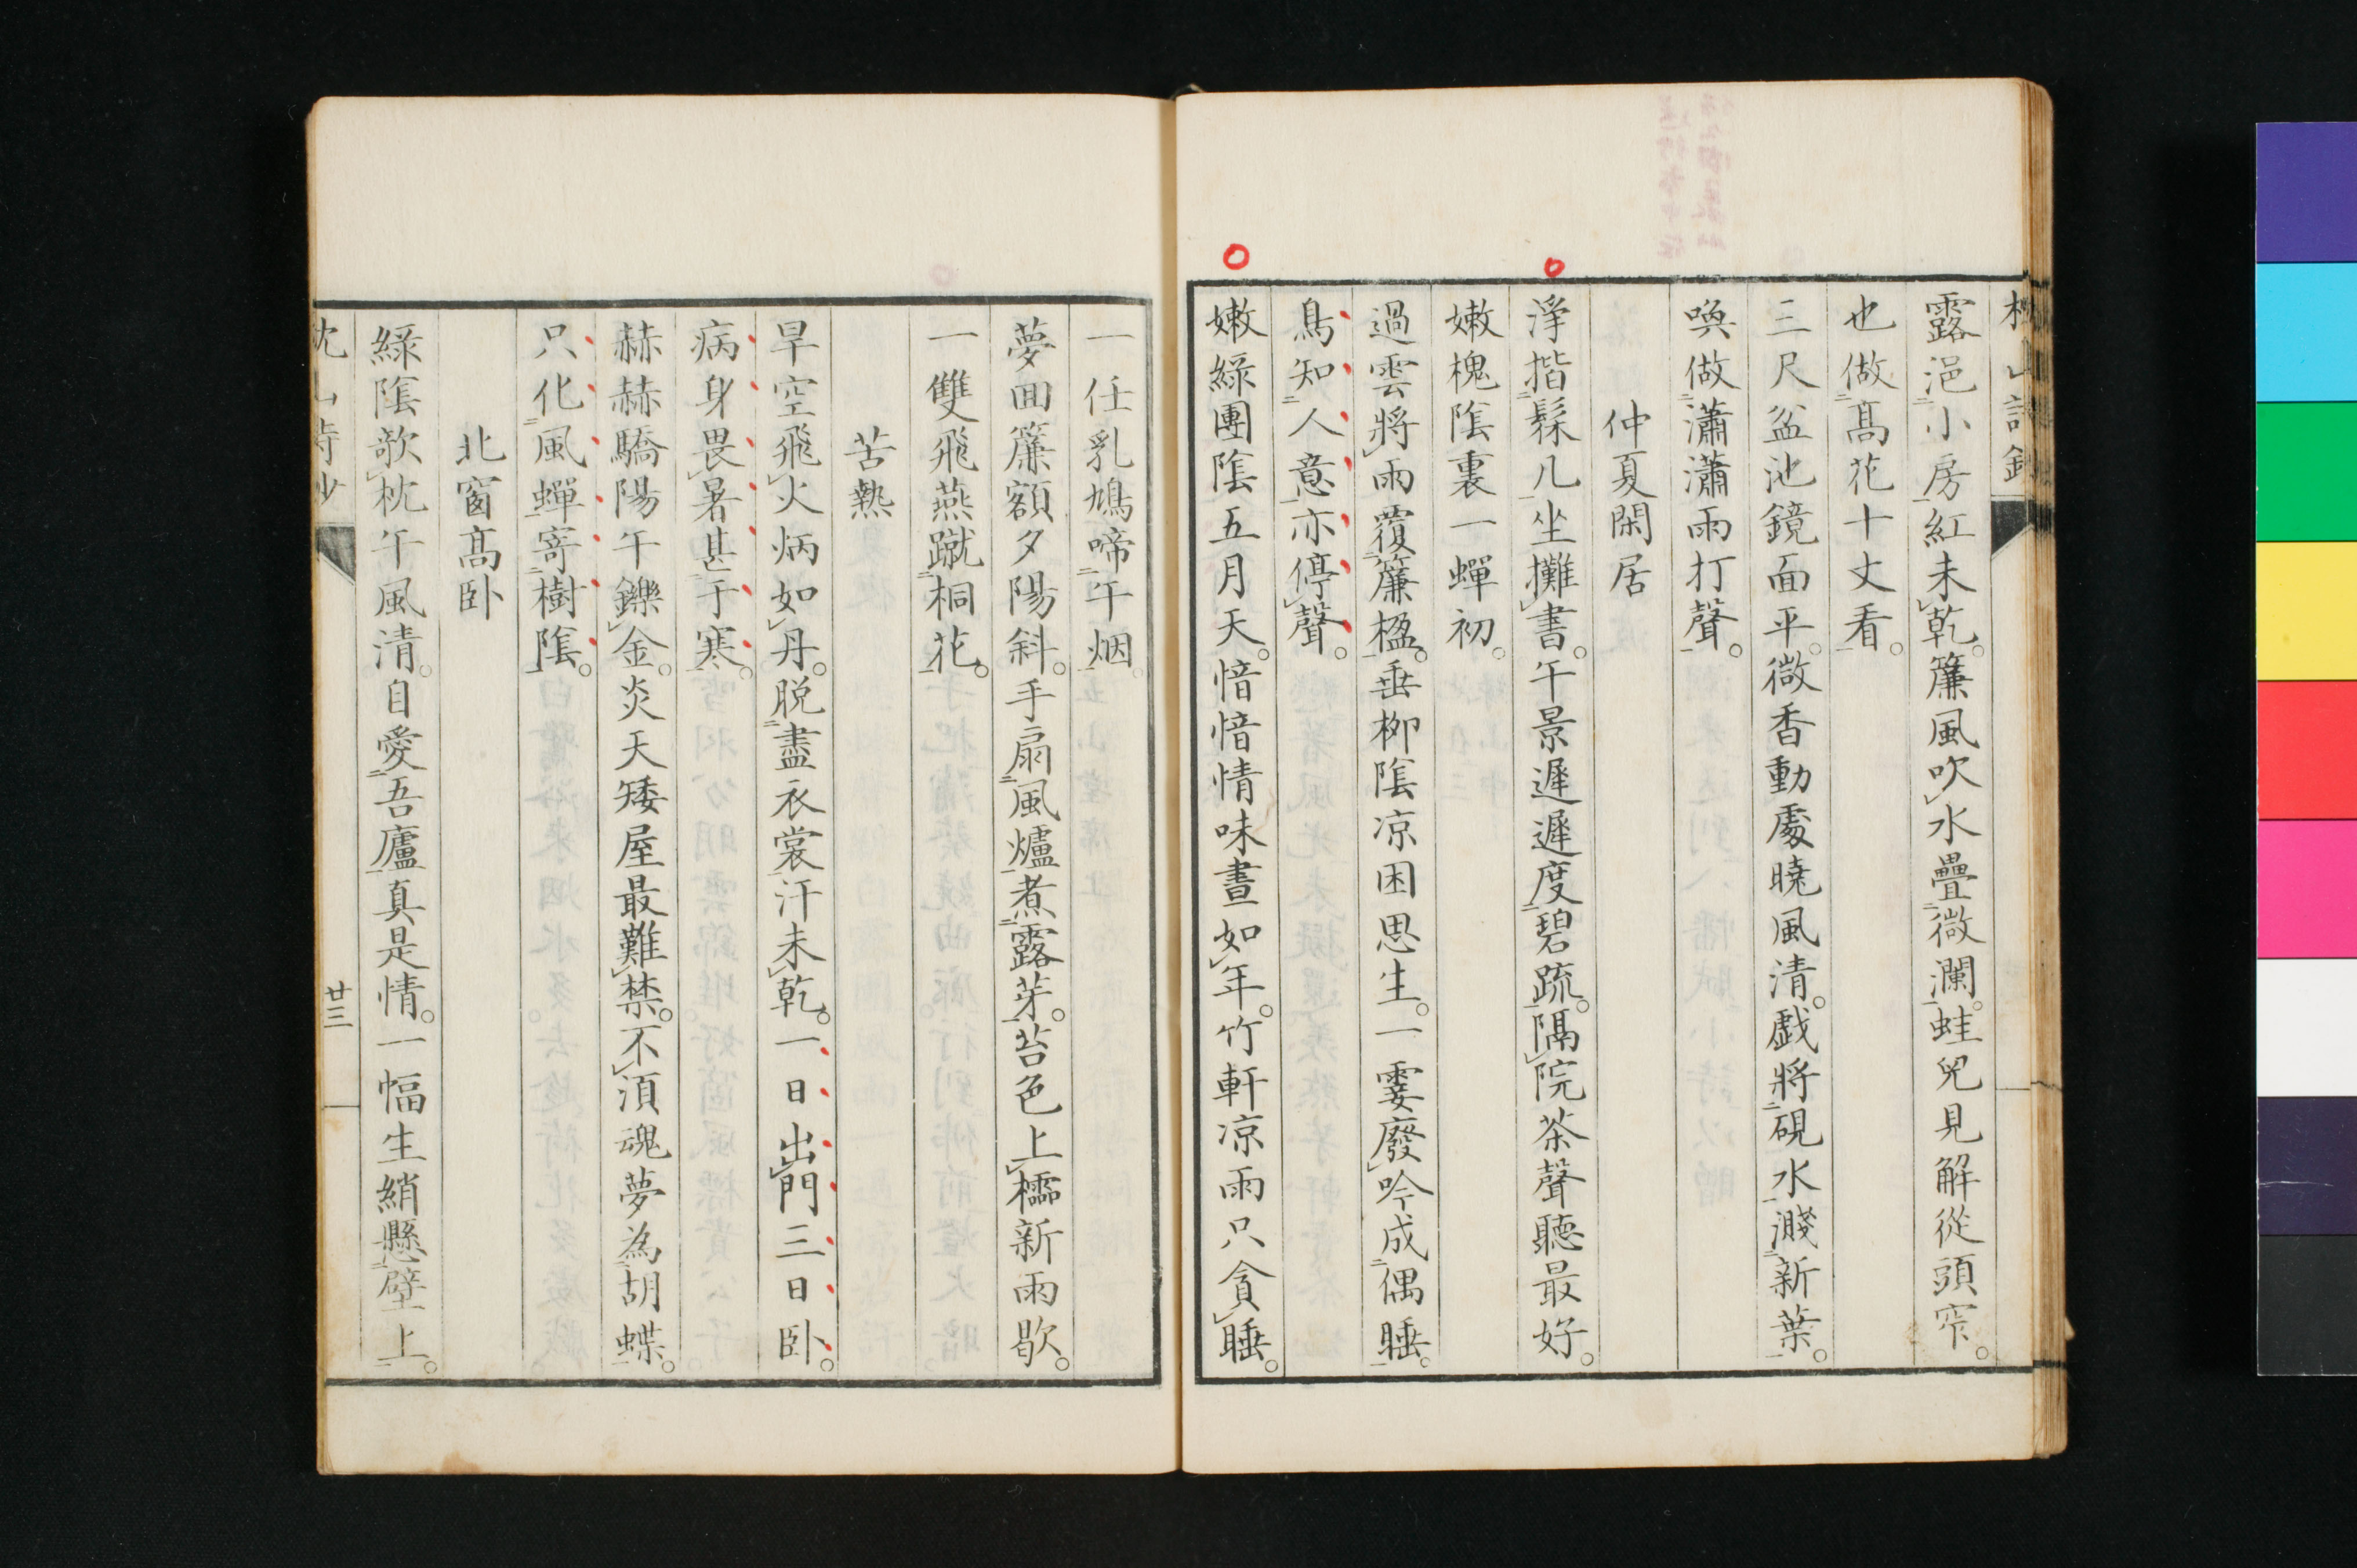 枕山詩鈔
露浥小房紅未乾。簾風吹水疊微瀾。蛙兒見解從頭窄。
也做高花十丈看。
三尺盆池鏡面平。微香動處曉風清。戲將硯水濺新葉。
喚做瀟瀟雨打聲。
仲夏閑居
淨揩髹几坐攤書。午景遲遲度碧疏。隔院茶聲聽最好。
嫩槐陰裏一蟬初。
過雲將雨覆簾楹。垂柳陰凉困思生。一霎廢吟成偶睡。
鳥知人意亦停聲。
嫩綠團陰五月天。愔愔情味晝如年。竹軒凉雨只貪睡。
一任乳鳩啼午烟。
夢回簾額夕陽斜。手扇風爐煮露芽。苔色上櫺新雨歇。
一雙飛燕蹴桐花。
苦熱
旱空飛火炳如丹。脫盡衣裳汗未乾。一日出門三日卧。
病身畏暑甚于寒。
赫赫驕陽午鑠金。炎天矮屋最難禁。不須魂夢為胡蝶。
只化風蟬寄樹陰。
北窗高卧
綠陰欹枕午風清。自愛吾廬真是情。一幅生綃懸壁上。
枕山詩鈔
廿三